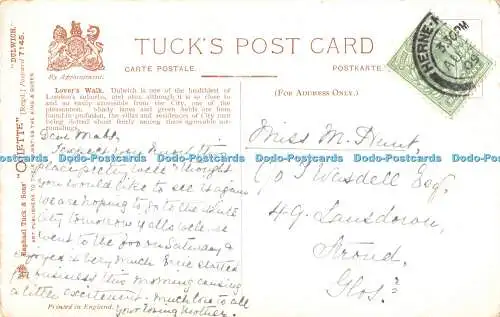 "DULWICH."
Raphael Tuck & Sons' "OILETTE" [Regd.] Postcard 7145.
ART PUBLISHERS TO THEIR MAJESTIES THE KING & QUEEN
By Appointment.
TUCK'S POST CARD
CARTE POSTALE.
POSTKARTE.
(FOR ADDRESS ONLY.)
Lover's Walk. Dulwich is one of the healthiest of
London's suburbs, and also, although it is so close to
and so easily accessible from the City, one of the
prettiest. Shady lanes and green fields are here
found in profusion, the villas and residences of City men
being dotted about freely among these agreeable sur-
roundings.
Dear Mabl,
I expect you know this
place pretty well. Thought
you would like to see it again
We are hoping to go to the White
City tomorrow if all's well. We
went to the Zoo on Saturday &
enjoyed it very much. Ernie started
business this morning causing
a little excitement. Much love to all
Your loving Mother.
Printed in England.
Miss M. Hunt,
c/o J Wasdell Esq.
49, Lansdown,
Stroud,
Glos.
HERNE
3.30 PM
09
www.delcampe.net
www.delcampe.net
www.delcampe.net